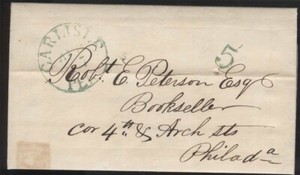 CARLISLE
5
Robt. E. Peterson Esq
Bookseller
cor 4th & Arch sts
Philada